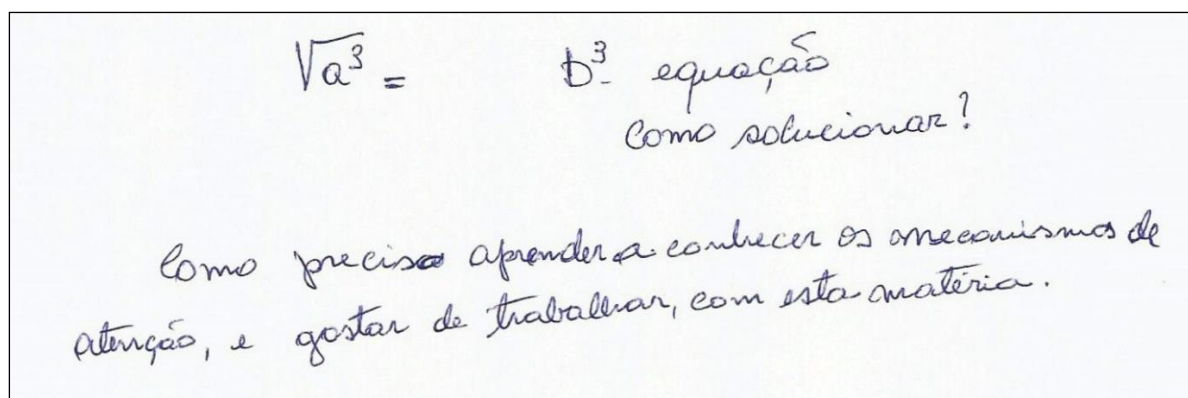 √a³ = b³- equação
como solucionar?
Como preciso aprender a conhecer os mecanismos de
atenção, e gostar de trabalhar, com esta matéria.